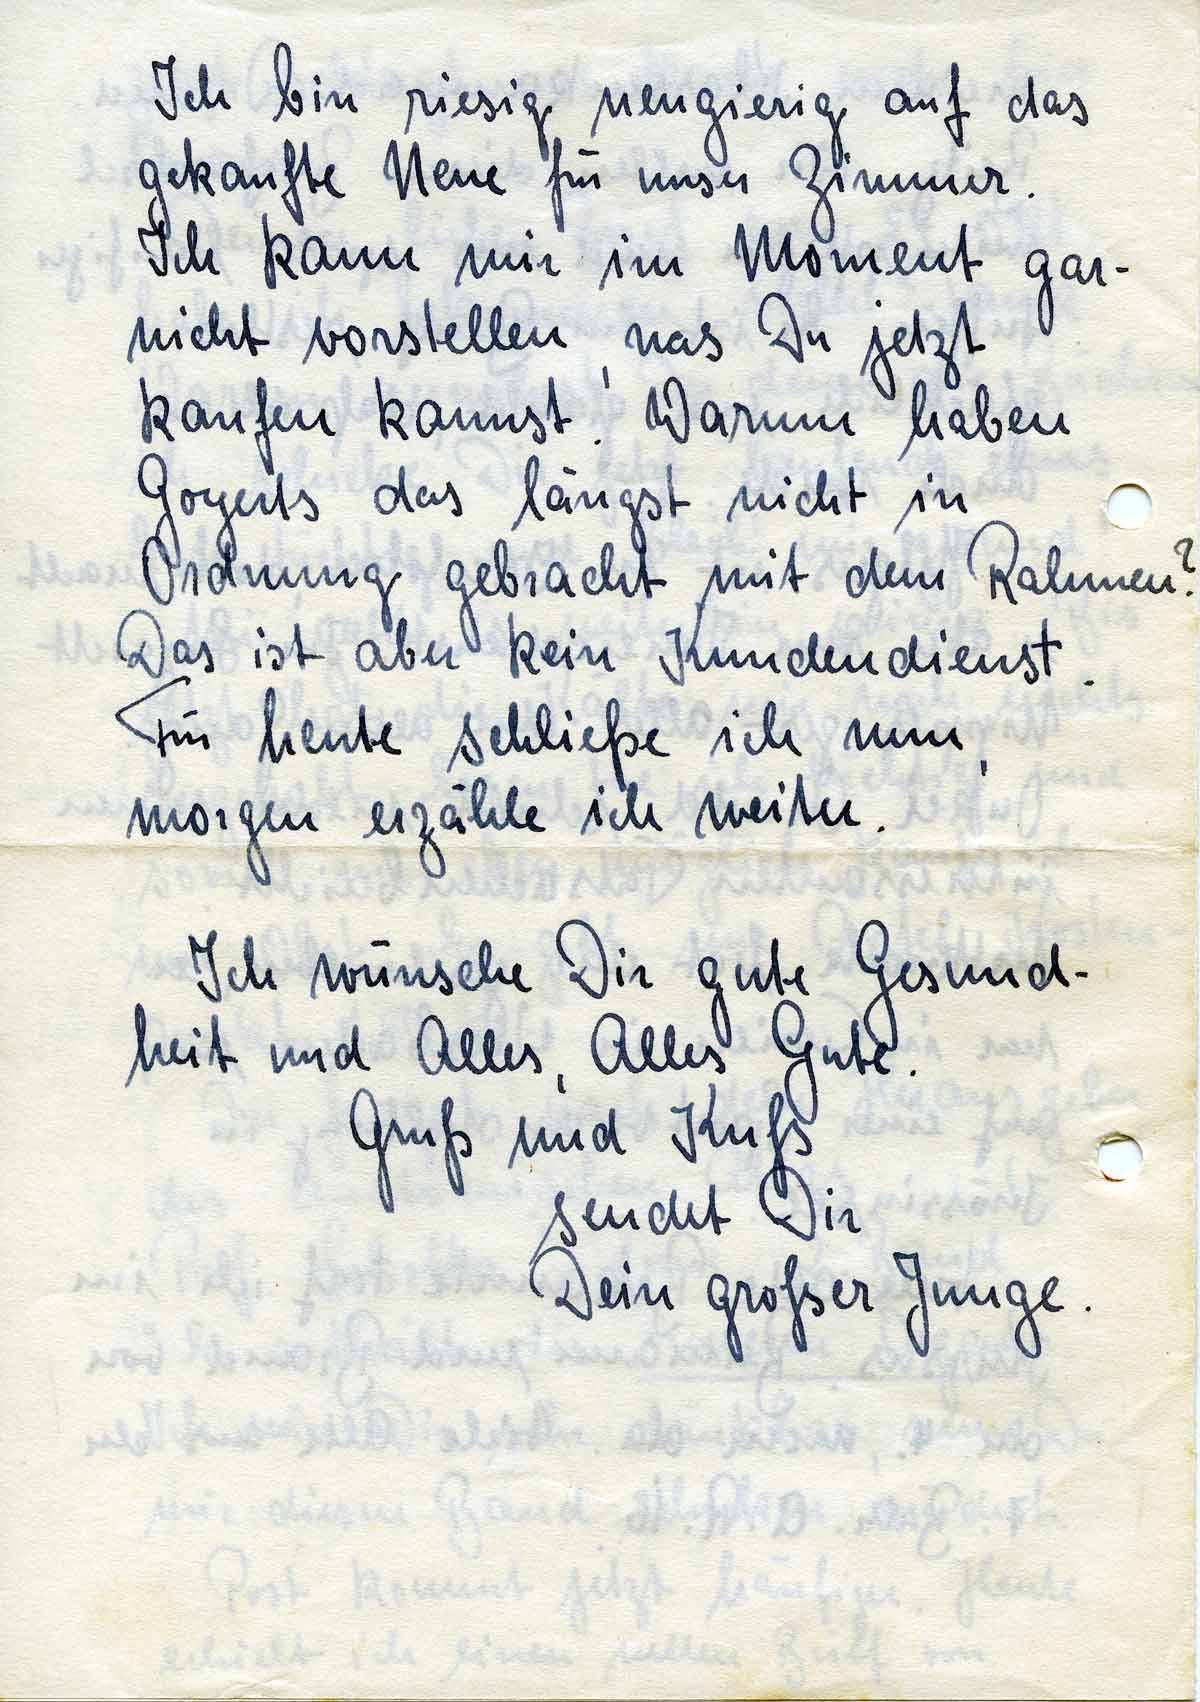 Ich bin riesig neugierig auf das
gekaufte Neue für unser Zimmer.
Ich kann mir im Moment gar-
nicht vorstellen, was Du jetzt
kaufen kannst. Warum haben
das längst nicht in
Ordnung gebracht mit dem Rahmen?
Das ist aber kein Kundendienst.
Für heute schließe ich nun,
morgen erzähle ich weiter.
Ich wünsche Dir gute Gesund-
heit und Alles, Alles Gute.
Gruß und Kuß
sendet Dir
Dein großer Junge.